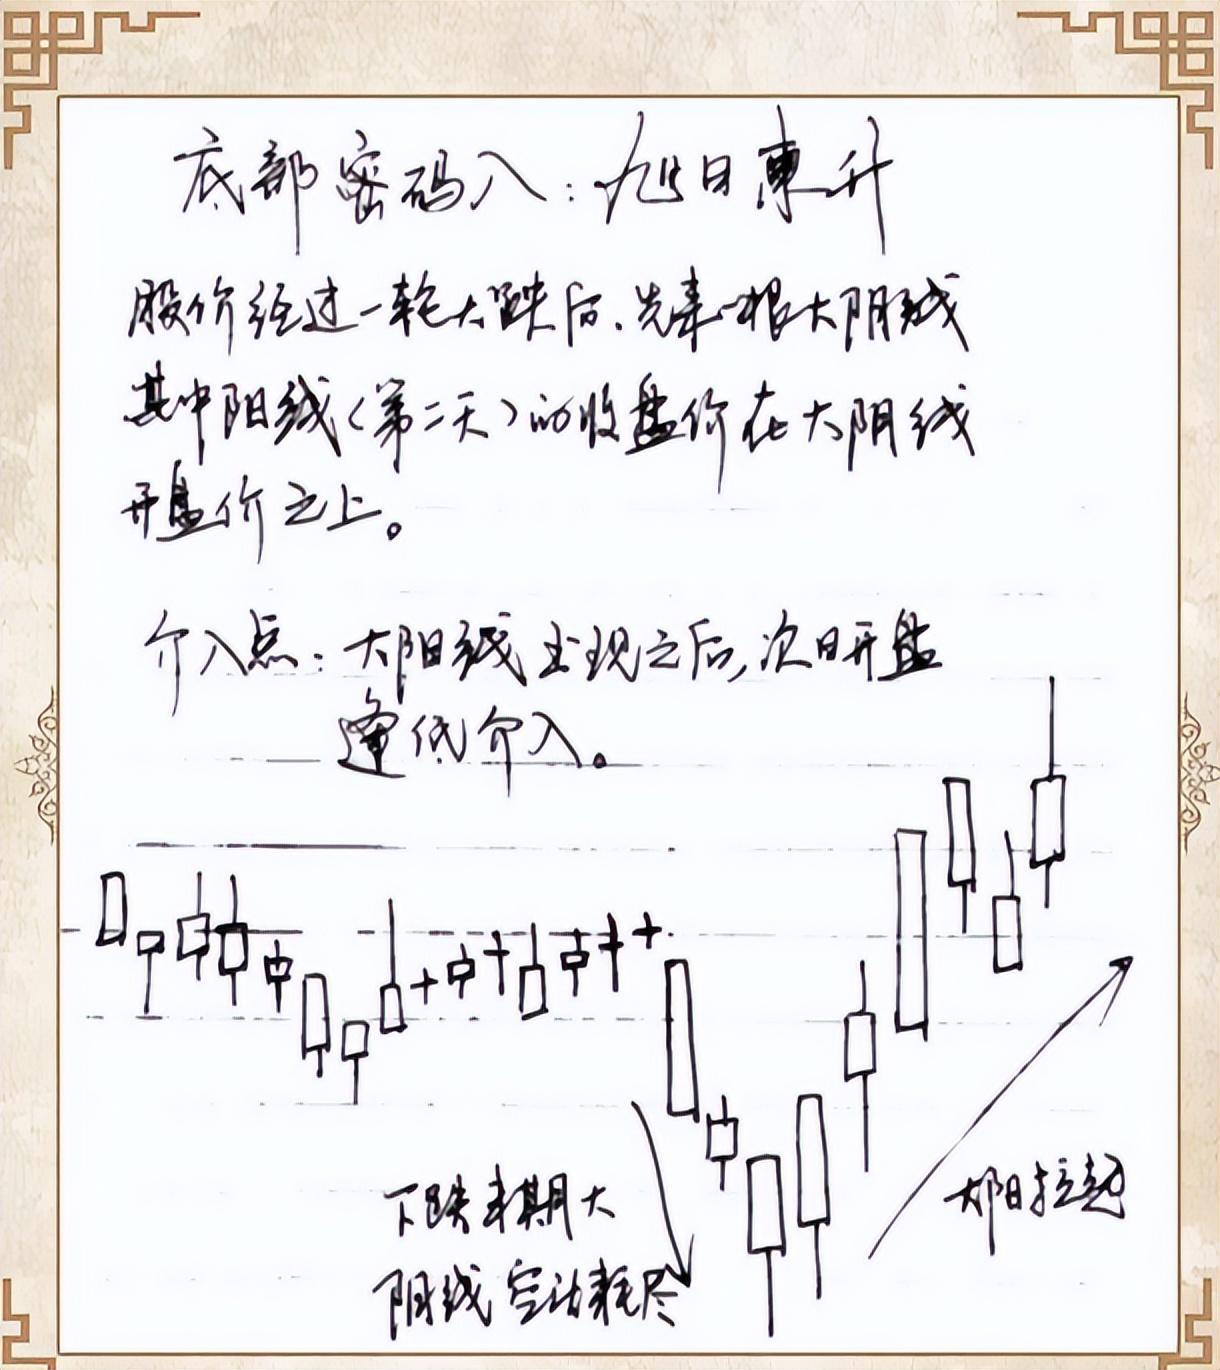 底部密码八：旭日東升
股价经过一轮大跌后，先来一根大阴线
其中阳线（第二天）的收盘价在大阴线
开盘价之上。
介入点：大阳线出现之后，次日开盘
逢低介入。
下跌末期大
阴线 空动耗尽
大阳拉起